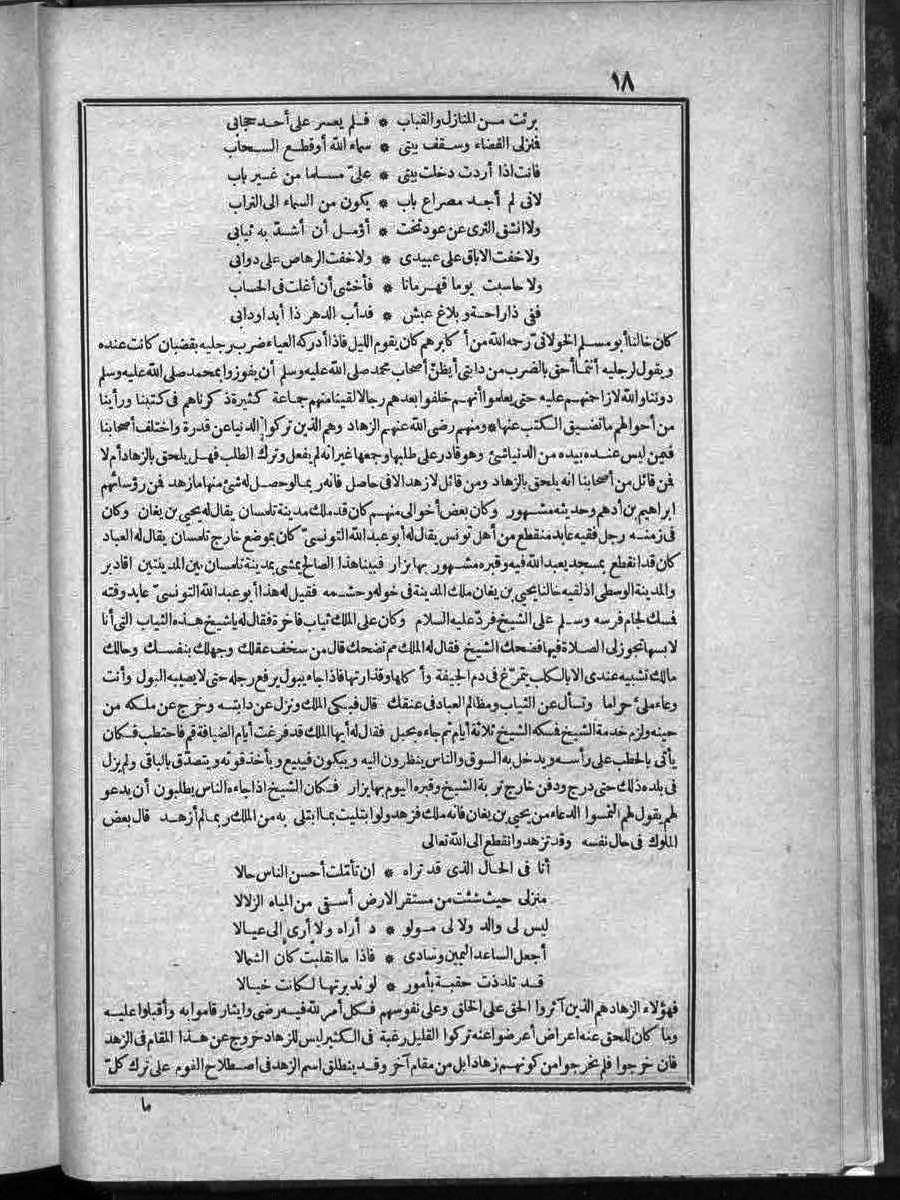 ١٨
برئت مـن المنازل والقباب * فـلم يعسر على أحـد حجابى
فنزلى الفضاء وسـقف بيتى * سماء الله أوقطـع السـحاب
فانت اذا أردت دخلت بيتى * علىّ مسـلما من غـير باب
لانى لم أجـد مصراع باب * يكون من السماء الى التراب
ولا انشق الثرى عن عود تخت * أؤمـل أن أشـدّ به ثيابى
ولاخفت الاباق على عبيدى * ولاخفت الرهاص على دوابى
ولا حاسبت يوما قهـرمانا * فأخشى أن أغلت فى الحساب
ففى ذا راحـة وبلاغ عيش * فدأب الدهر ذا أبدا ودابى
كان خالنا أبو مسـلم الخولانىّ رحمه الله من أكابرهم كان يقوم الليل فاذا أدركه العياء ضرب رجليه بقضبان كانت عنده
ويقول لرجليه أنتما أحق بالضرب من دابتى أيظنّ أصحاب محمد صلى الله عليه وسلم أن يفوزوا بمحمد صلى الله عليه وسلم
دوننا والله لازاحمنهـم عليه حتى يعلموا أنهـم خلفوا بعدهم رجالا لقينا منهم جماعة كثيرة ذكرناهم فى كتبنا ورأينا
من أحوالهم ما تضيق الكتب عنها * ومنهم رضى الله عنهم الزهاد وهم الذين تركوا الدنيا عن قدرة واختلف أصحابنا
فيمن ليس عنـده بيده من الدنيا شئ وهو قادر على طلبها وجمعها غير انه لم يفعل وترك الطلب فهـل يلحق بالزهاد أم لا
فن قائل من أصحابنا انه يلحق بالزهاد ومن قائل لازهد الافى حاصل فانه ربما لو حصـل له شئ منها ما زهد فن رؤسائهم
ابراهيم بن أدهم وحديثه مشـهور وكان بعض أخوالى منهـم كان قد ملك مدينة تلمسان يقال له يحيى بن يغان وكان
فى زمنـه رجل فقيه عابد منقطع من أهل تونس يقال له أبو عبد الله التونسىّ كان بموضع خارج تلمسان يقال له العباد
كان قد انقطع بمسجد يعبد الله فيه وقبره مشـهور بها يزار فبينا هذا الصالح يمشى بمدينة تلمسان بين المدينتين اقادير
والمدينة الوسطى اذ لقيه خالنا يحيى بن يغان ملك المدينة فى خوله وحشـمه فقيل له هذا أبو عبد الله التونسىّ عابد وقته
فسك لجام فرسه وسـلم على الشيخ فردّ عليه السلام وكان على الملك ثياب فاخرة فقال له ياشيخ هـذه الثياب التى أنا
لابسها تجوز لى الصـلاة فيها فضحك الشيخ فقال له الملك مم تضحك قال من سخف عقلك وجهلك بنفسـك وحالك
مالك تشبيه عندى الا بالكلب يتمرّغ فى دم الجيفة وأكلها وقذارتها فاذا جاء يبول يرفع رجله حتى لا يصيبه البول وأنت
وعاء ملئ حراما وتسأل عن الثياب ومظالم العباد فى عنقك قال فبـكى الملك ونزل عن دابتـه وخرج عن ملـكه من
حينه ولزم خدمة الشيخ فسكه الشيخ ثلاثة أيام ثم جاءه بحبل فقال له أيها الملك قد فرغت أيام الضيافة قم فاحتطب فـكان
يأتى بالحطب على رأسـه ويدخل به السوق والناس ينظرون اليه ويبكون فيبيع ويأخذ قوته ويتصدّق بالباقى ولم يزل
فى بلده ذلك حتى درج ودفن خارج تربة الشيخ وقبره اليوم بها يزار فـكان الشيخ اذا جاءه الناس يطلبون أن يدعو
لهم يقول لهم التمسوا الدعاء من يحيى بن يغان فانه ملك فزهد ولو ابتليت بما ابتلى به من الملك ربمـا لم أزهـد قال بعض
الملوك فى حال نفسه وقد تزهد وانقطع الى الله تعالى
أنا فى الحـال الذى قد تراه * ان تأمّلت أحسن الناس حالا
منزلى حيث شئت من مستقر الارض أسـقى من المياه الزلالا
ليس لى والد ولا لى مـولو * د أراه ولا أرى لى عيـالا
أجعل الساعد اليمين وسادى * فاذا ما انقلبت كان الشمالا
قـد تلذذت حقبـة بأمور * لو تدبرتهـا لـكانت خيـالا
فهؤلاء الزهاد هم الذين آثروا الحق على الخلق وعلى نفوسهم فـكل أمر لله فيـه رضى وايثار قاموا به وأقبلوا عليـه
وما كان للحق عنه اعراض أعرضوا عنه تركوا القليل رغبة فى الـكثير ليس للزهاد خروج عن هـذا المقام فى الزهد
فان خرجوا فلم يخرجوا من كونهـم زهادا بل من مقام آخر وقـد ينطلق اسم الزهد فى اصـطلاح القوم على ترك كلّ
ما